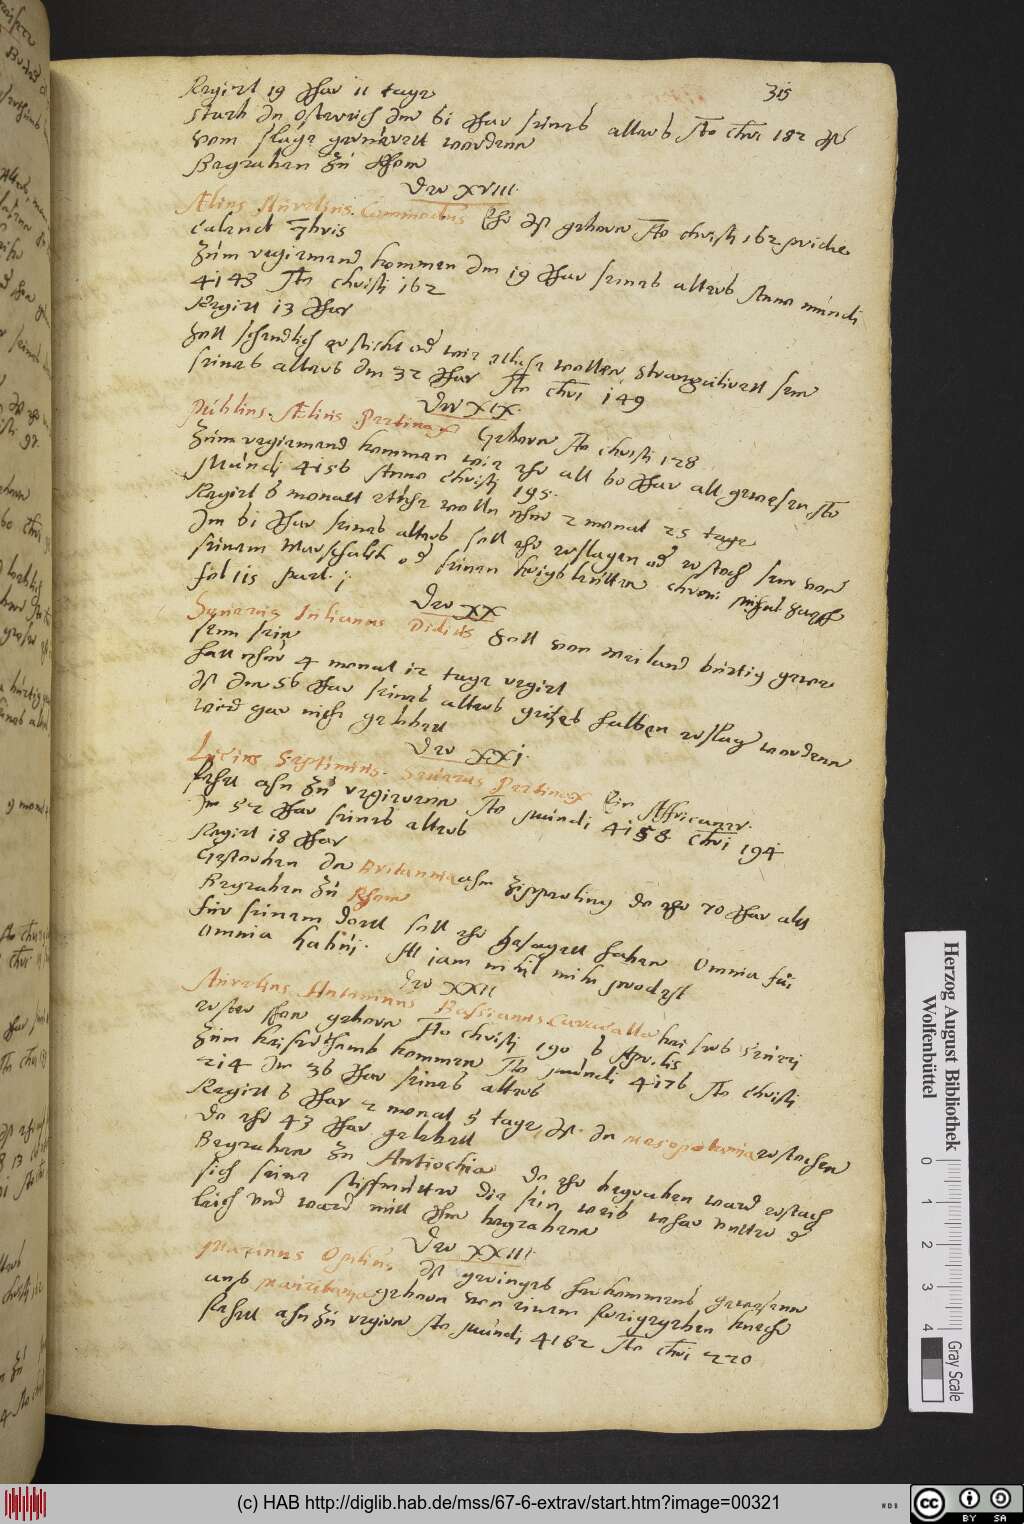 315
Regirt 19 Jhar 11 tage
starb In Osterreich Im 61 Jhar seines alters A̅o ch̅ri 182 Ist
vom slage geruert worden
Begraben zu Rhom
Der XVIII.
Ælius Aurelius Commodus Ehr Ist geborn A̅o christi 162 pridie
Calend 7bris
Zum regiment kommen Im 19 Jhar seines alters Anno mundi
4143 A̅o christi 182
Regirt 13 Jhar
seines alters Im 32 Jhar A̅o ch̅ri 149
Der XIX.
Publius Ælius Pertinax Geborn A̅o christi 128
Zum regiment kommen wie ehr alt 60 Jhar alt gewesen A̅o
Mundi 4156 Anno christi 195.
Regirt 6 monatt etliche wolln nhur 2 monat 25 tage
Im 61 Jhar seines alters soll ehr erslagen od erstoch sein von
seinem Marschalck od
fol 115 part. j.
Der XX
Severus Iulianus Didius soll von Meiland burtig gewe
senn sein
hatt nhur 4 monat 12 tage regirt
Ist Im 56 Jhar seines alters geitzes halben erslag worden
wird gar nich gelobett
Der XXI.
Lucius Septimius Severus Pertinax Ein Affricaner.
fehett ahn zu regierenn A̅o mundi 4158 ch̅ri 194
Im 52 Jhar seines alters
Regirt 18 Jhar
Gestorben In Britannia ahm zipperling do ehr 70 Jhar alt
Begraben zu Rhom
Fur seinem dott soll ehr gesagett haben Omnia fui
omnia habui. At iam nihil mihi prodest
Der XXII
Aurelius Antoninus Bassianus Caracalla keisers Seueri
erster shon geborn A̅o christi 190 6 Aprilis
Zum keiserthumb kommen A̅o mundi 4176 A̅o christi
214 Im 36 Jhar seines alters
Regirt 6 Jhar 2 monat 5 tage, Ist In Mesopotamia erstochen
Do ehr 43 Jhar gelebett
Begraben zu Antiochia Do ehr begraben ward erstach
sich seine stiffmutter die sein weib
leich vnd ward mitt Ihm begrabenn
Der XXIII.
Macrinus Opilius Ist geringes herkommens gewesenn
aus Mauritania geborn von einem knecht
fehett ahn zu regirn A̅o mundi 4182 A̅o ch̅ri 220
Herzog August Bibliothek
Wolfenbüttel
0 1 2 3 4
Gray Scale
(c) HAB http://diglib.hab.de/mss/67-6-extrav/start.htm?image=00321
WDB
CC BY SA